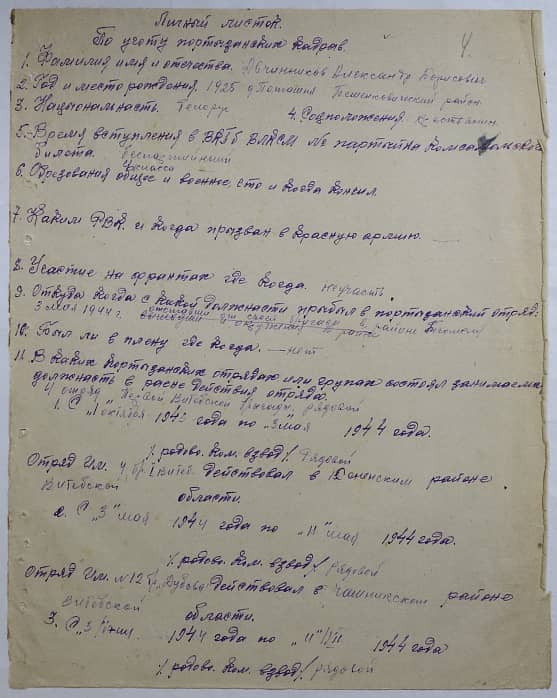 Личный листок.
По учоту портызанских кадрав.
4.
1. Фамилия имя и отечества. Овчинников Александр Борисович
2. Год и место рождения 1925 д Поташня Бешенковический район
3. Нацыональность. Белорус 4. Соцположения крестьянин
5. Время вступления в ВКПб ВЛКСМ № партбилна комсамольсково
билета. беспартийный
6. Образования общое и военное, што и когда кончил. 4 класса
7. Каким РВК. и когда прызван в красную армию. —
8. Участие на франтах где когда. неучаств.
9. Откуда когда с какой должности прыбыл в портызанский отряд.
3 мая 1944 г. в районе
10. Был ли в плену где когда. — нет
11. В каких портызанских отрядах или групах состоял занимаемая
должнасть в раене действия отряда.
4 отряд Первой Витебской бригады, рядовой
1. С "1" октября 1943 года по "3" мая 1944 года.
/. родово. Ком. взвод/. Рядовой
Отряд Им. 4 бр. 1 Витеб. Действовал в районе
Витебской области.
2. С "3" мая 1944 года по "11" мая 1944 года.
/. родово. Ком. взвод/ рядовой
Отряд Им. №12 бр. Дубова Действовал в Чашникском районе
Витебской области.
3. С "3" 1944 года по "11" 1944 года
/. родово. Ком. взвод/ рядовой